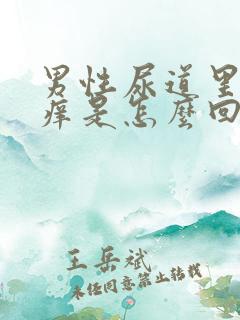 男性尿道里
痒是怎麼回
王岳斌
未经同意禁止转载